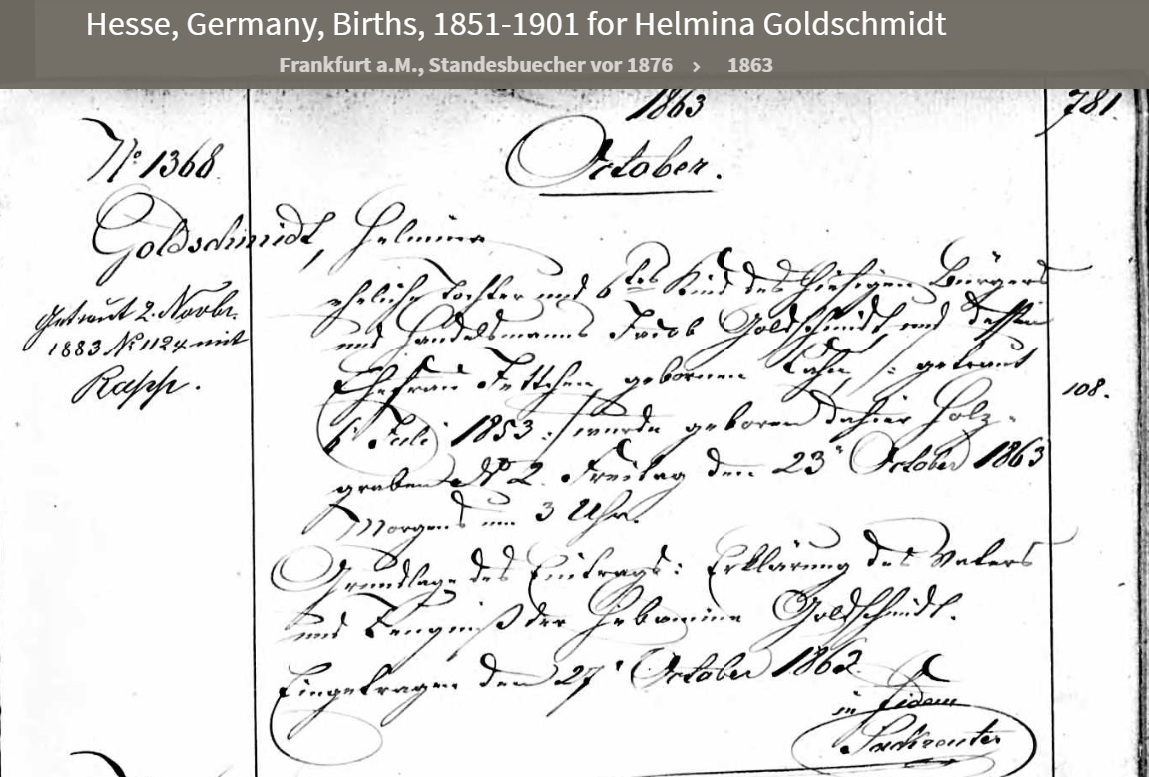 Hesse, Germany, Births, 1851-1901 for Helmina Goldschmidt
Frankfurt a.M., Standesbuecher vor 1876 › 1863
1863
781.
October.
No 1368.
Goldschmidt, Helmina
eheliche Tochter und 6tes Kind des hiesigen Bürgers
und Handelsmanns Jacob Goldschmidt und dessen
Ehefrau Jettchen, gebornen Cahn, /: getraut
6 Juli 1853 :/ wurde geboren dahier Holz-
graben No 2. Freitag den 23n October 1863
Morgens um 3 Uhr.
Getraut 2. Novbr.
1883 No 1124 mit
Rapp.
108.
Grundlage des Eintrags: Erklärung des Vaters
und Zeugniß der Hebamme Goldschmidt.
Eingetragen den 27n October 1863.
in fidem